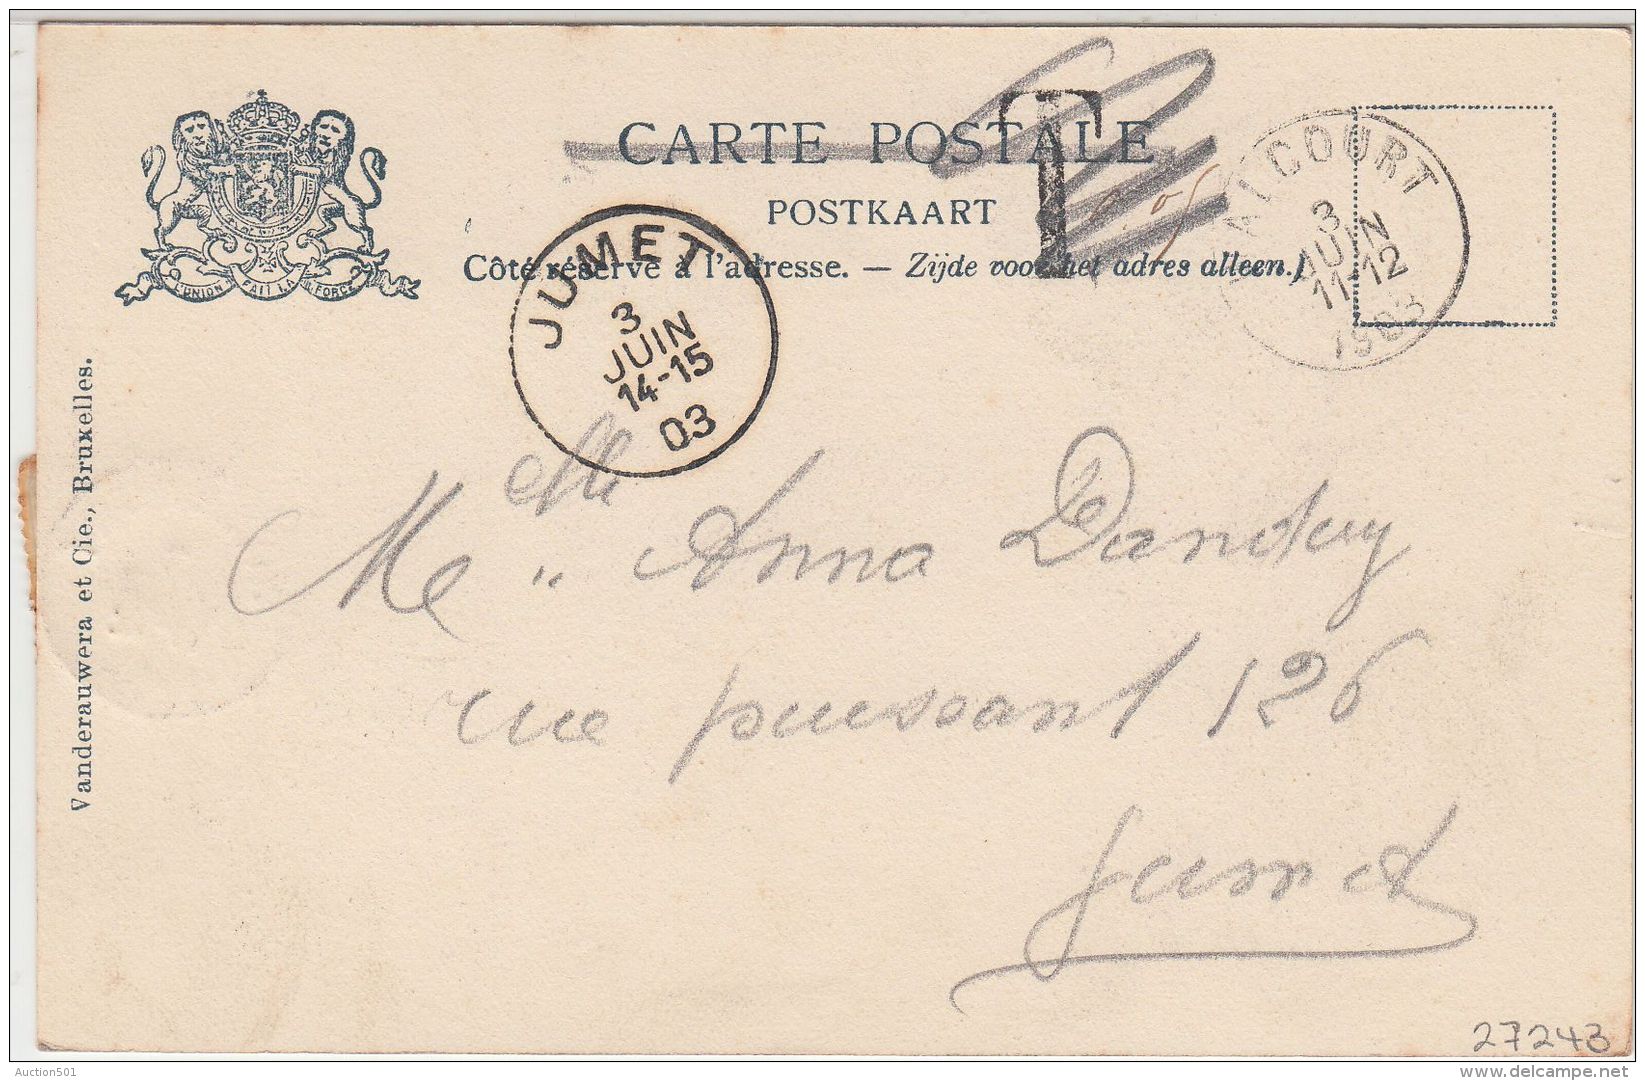 CARTE POSTALE
POSTKAART
Côté réservé à l'adresse. — Zijde voor het adres alleen.
L'UNION FAIT LA FORCE
T
0.05
ALCOURT
3
JUIN
11-12
1903
JUMET
3
JUIN
14-15
03
Vanderauwera et Cie., Bruxelles.
Melle Anna Dandoy
rue puissant 126
Jumet
27243
Auction501
delcampe.net